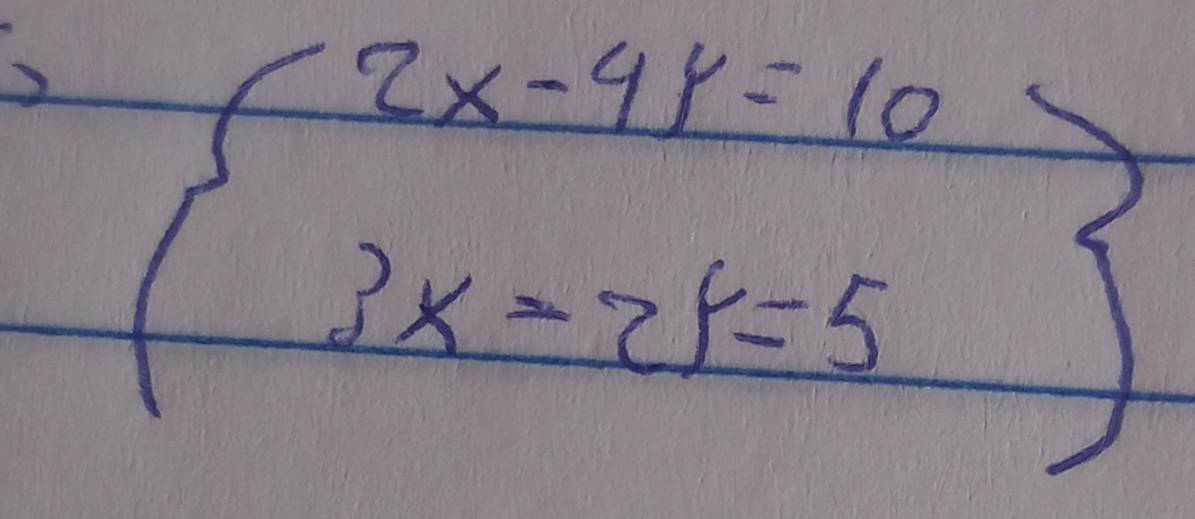 { 2x-4y=10 }
{ 3x-2y=5 }